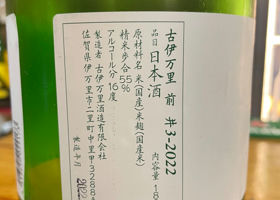 古伊万里 前 丼3-2022
品目 日本酒 内容量 18
原材料名 米(国産)米麹(国産米)
精米歩合55%
アルコール分16度
製造者 古伊万里酒造有限会社
佐賀県伊万里市二里町中里甲3288
製造年月 2022